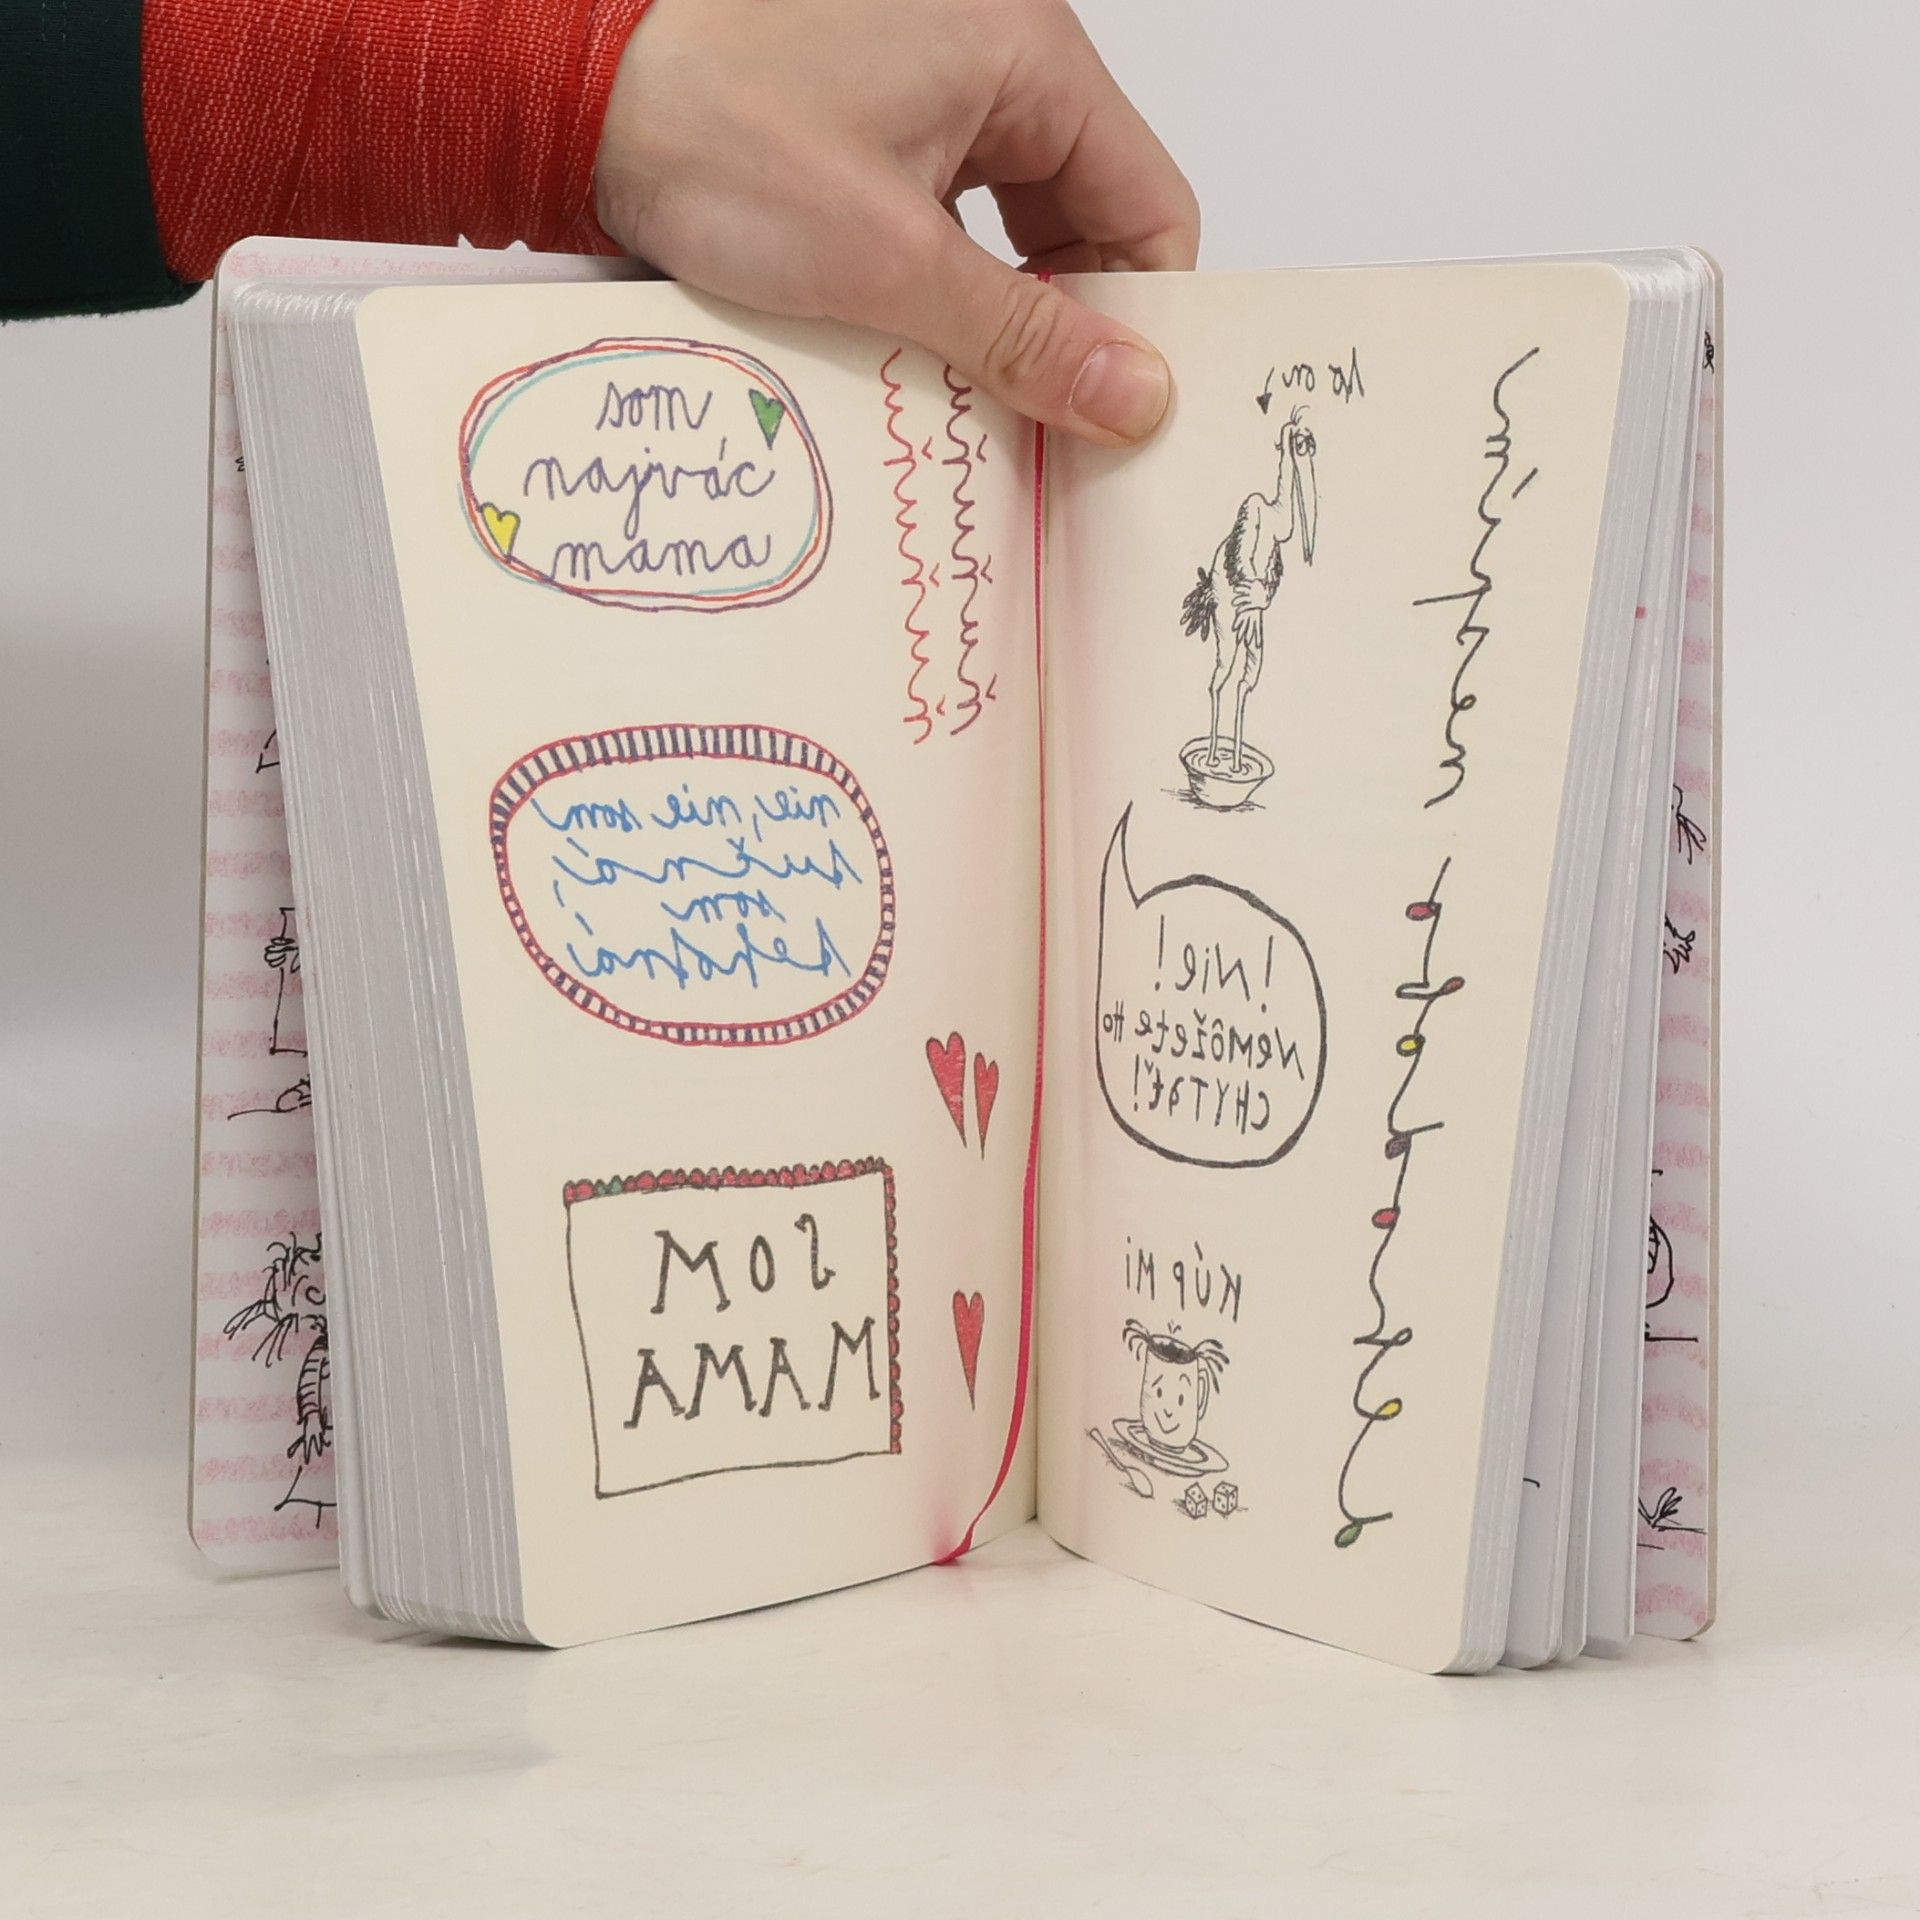 som
najvác
mama
nie, nie som
tučná,
som
tehotná
SOM
MAMA
to on
! Nie!
Nemôžete to
CHYTAť!
KÚP MI